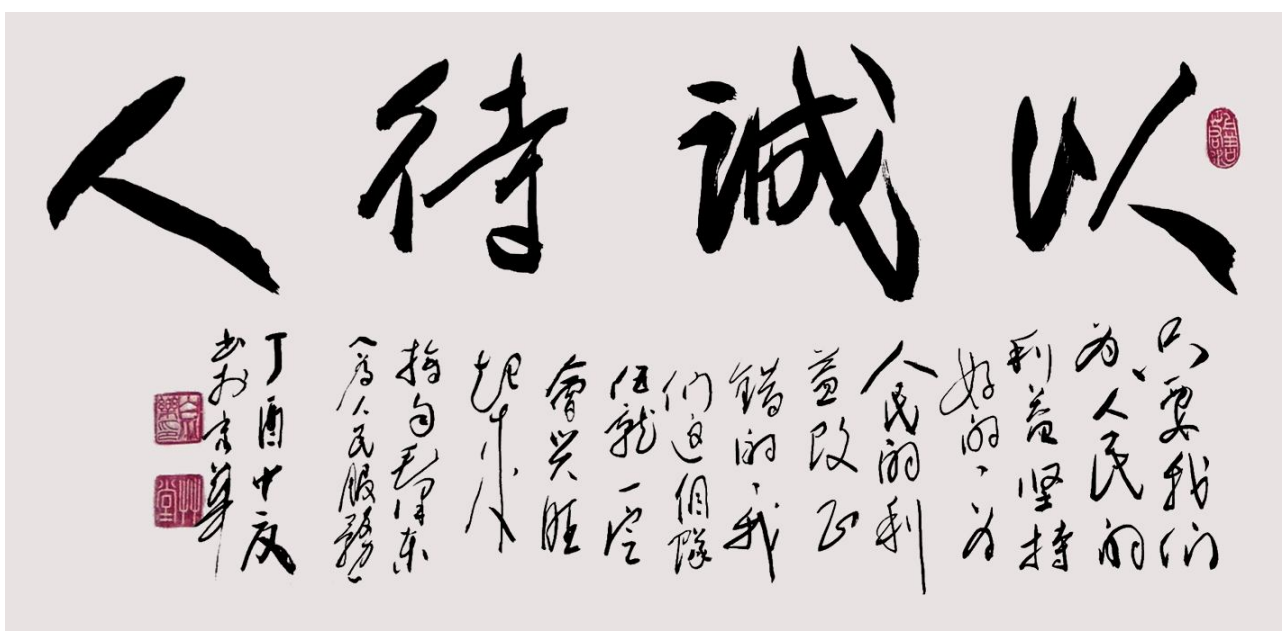 以誠待人
只要我们
为人民的
利益坚持
好的、为
人民的利
益改正
错的、我
们这個隊
伍就一定
會兴旺
起来
摘句毛泽东
《為人民服務》
丁酉中夏
书於京華
草堂